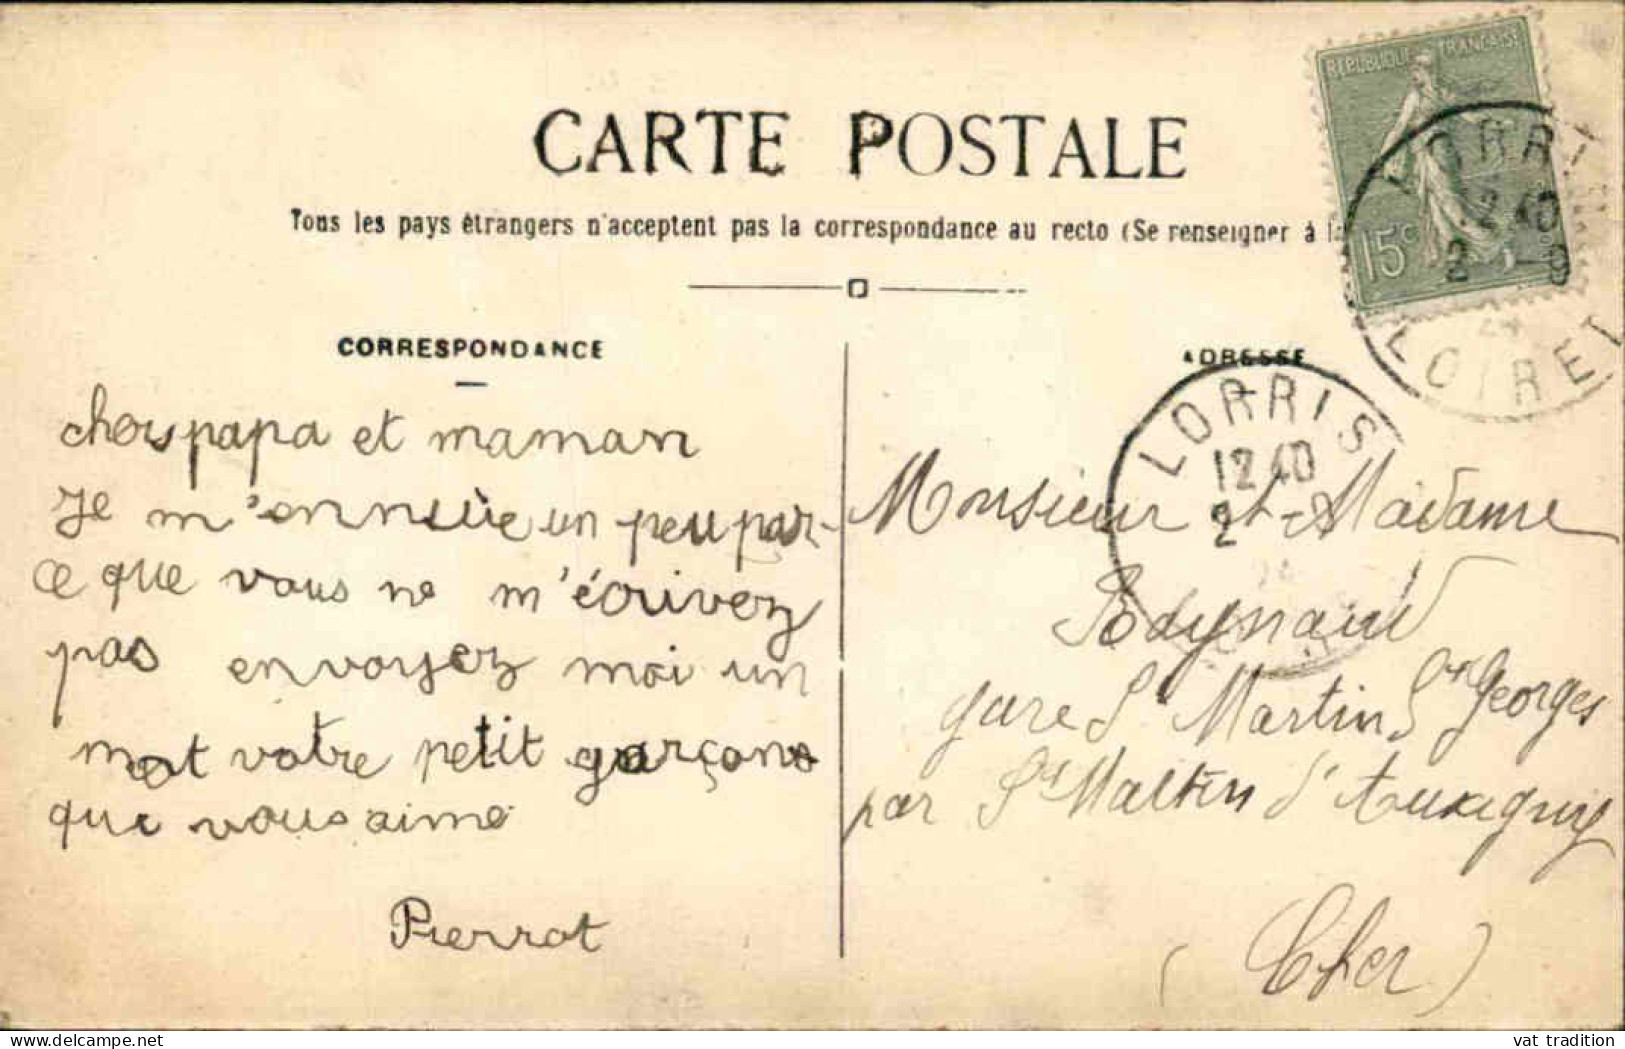 CARTE POSTALE
Tous les pays étrangers n'acceptent pas la correspondance au recto (Se renseigner à la
CORRESPONDANCE
chers papa et maman
Je m'ennuie un peu par-
ce que vous ne m'écrivez
pas envoyez moi un
mot votre petit garçons
que vous aime
Pierrot
ADRESSE
Monsieur et Madame
gare St Martin St Georges
par St Martin d'Auxigny
(Cher)
REPUBLIQUE FRANCAISE
15c
LORRIS
12 40
2 -9
24
LOIRET
LORRIS
12 40
2 -9
24
vat tradition